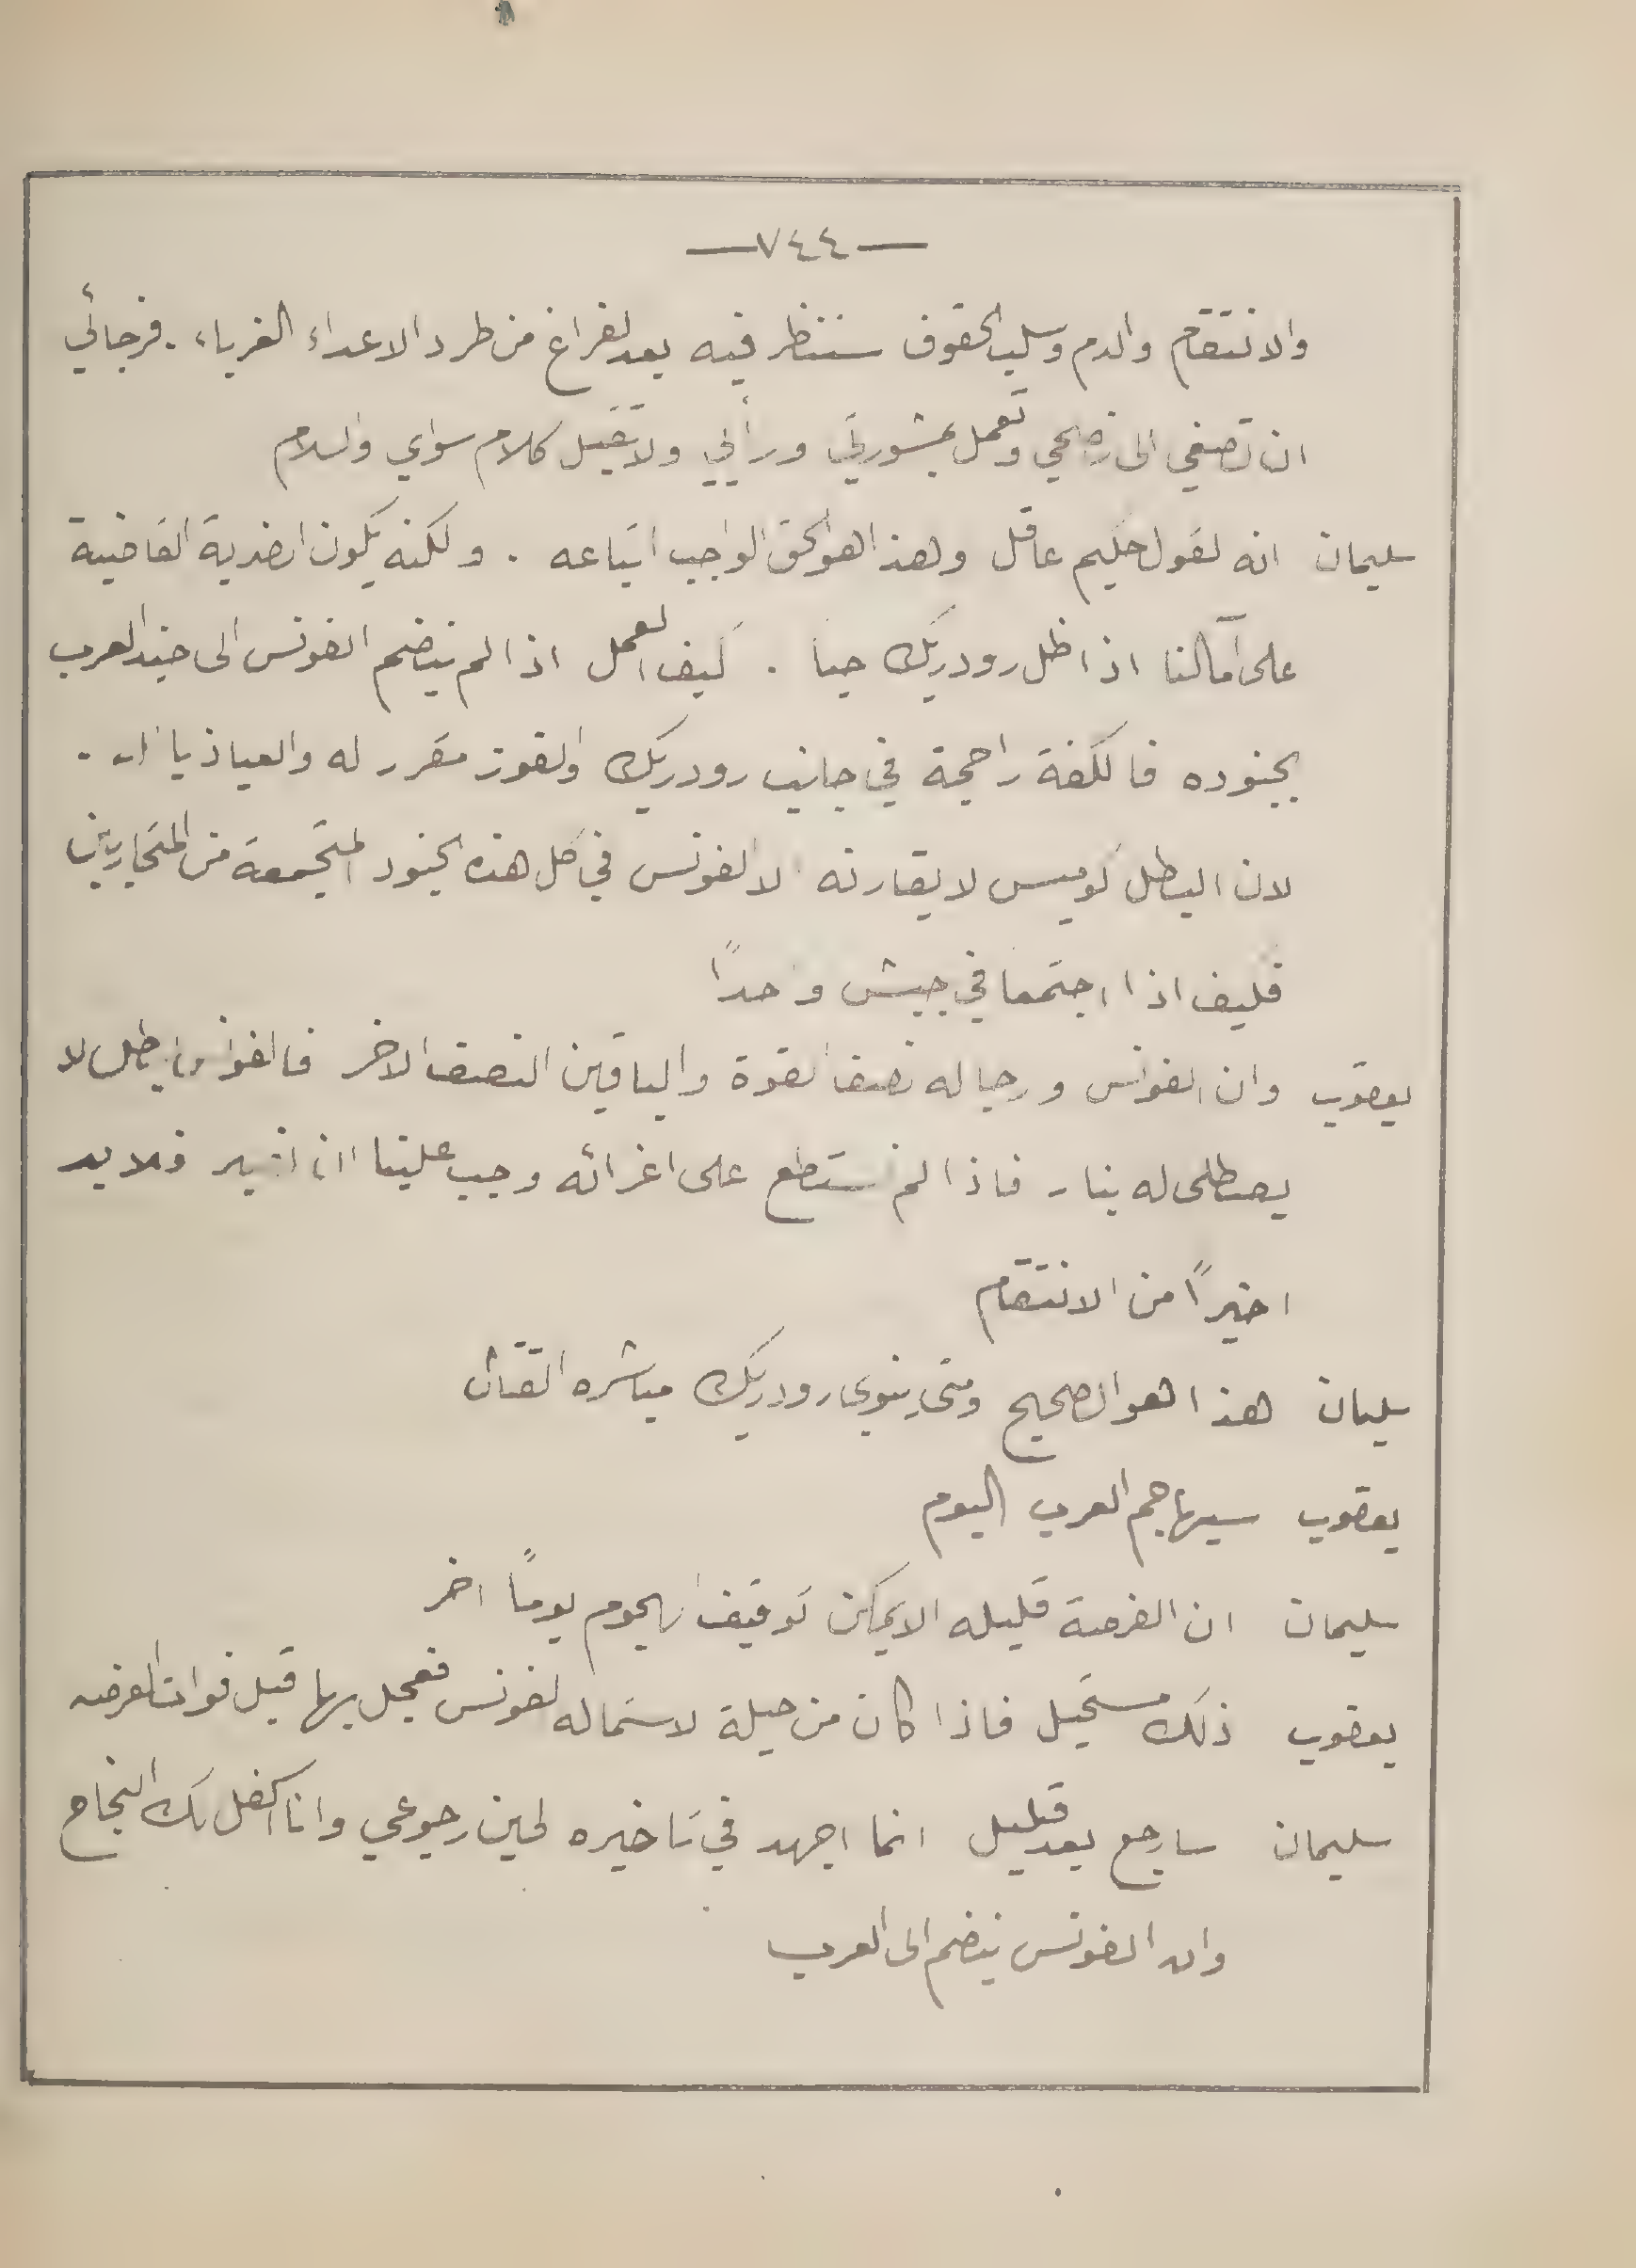 —٧٤٤—
والانتقام والدم وسلب الحقوق سننظر فيه بعد الفراغ من طرد الاعداء الغرباء . فرجائي
ان تصغي الى نصايحي وتعمل بمشورتي ورأيي ولا تقبل كلام سواي والسلام
سليمان انه لقول حكيم عاقل وهذا هو الحق الواجب اتباعه . ولكنه يكون الضربة القاضية
على آمالنا اذا ظل رودريك حيا . كيف العمل اذا لم ينضم الفونس الى جند العرب
بجنوده فالكفة راجحة في جانب رودريك والفوز مقرر له والعياذ بالله .
لان البطل كوميس لا يقارنه الا الفونس في كل هذه الجنود المتجمعة من المتحاربين
فكيف اذا اجتمعا في جيش واحدًا
يعقوب وان الفونس ورجاله نصف القوة والباقين النصف الاخر فالفونس بطل لا
يصطلى له بنار فاذا لم نستطع على اغرائه وجب علينا فلا بد
اخيرًا من الانتقام
سليمان هذا هو الصحيح ومتى ينوي رودريك مباشره القتال
يعقوب سيهاجم العرب اليوم
سليمان ان الفرصة قليله الا يمكن توقيف الهجوم يومًا اخر
يعقوب ذلك مستحيل فاذا كان من حيلة لاستماله الفونس فعجل بها قبل فوات الفرصه
سليمان سارجع بعد قليل انما اجهد في تاخيره لحين رجوعي وانا اكفل لك النجاح
وان الفونس ينضم الى العرب